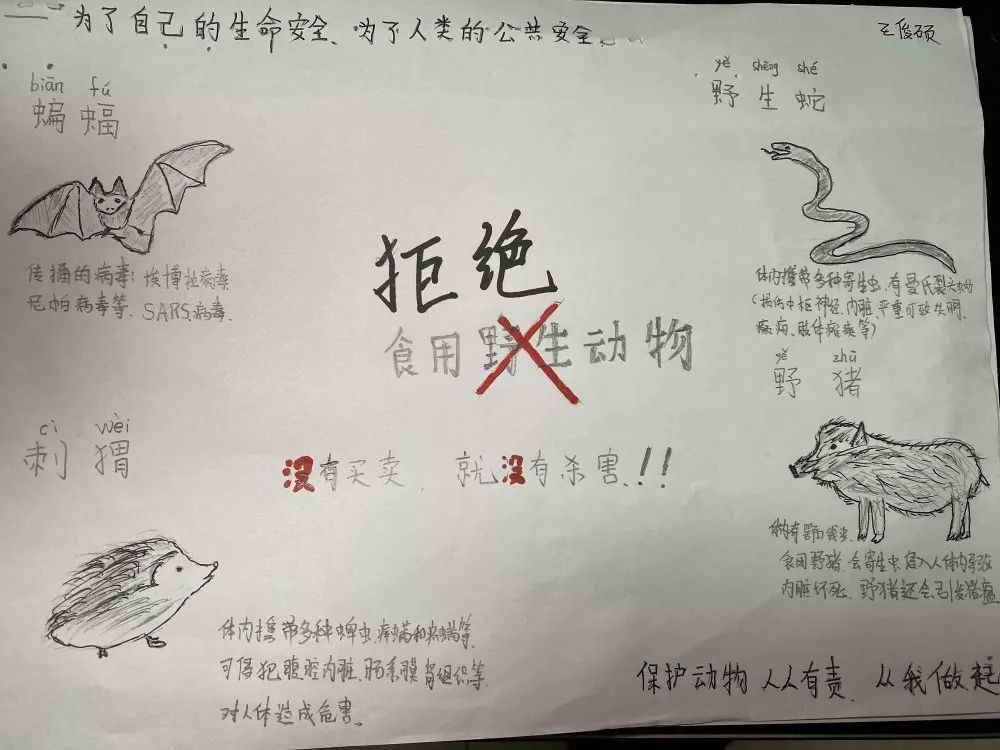 为了自己的生命安全、为了人类的公共安全。
王俊硕
biān fú
蝙 蝠
传播的病毒：埃博拉病毒
尼帕病毒等、SARS病毒、
yě shēng shé
野 生 蛇
体内携带多种寄生虫、有曼氏裂头蚴
(损伤中枢神经、内脏、严重可致失明、
癫痫、肢体瘫痪等)
拒绝
食用野生动物
没有买卖、就没有杀害!!
yě zhū
野 猪
体内有
食用野猪、会寄生虫侵入人体内导致
内脏坏死、野猪还会引发猪瘟
cì wèi
刺 猬
体内携带多种蜱虫、
可侵犯腹腔内脏、肠系膜 组织等
对人体造成危害。
保护动物 人人有责 从我做起